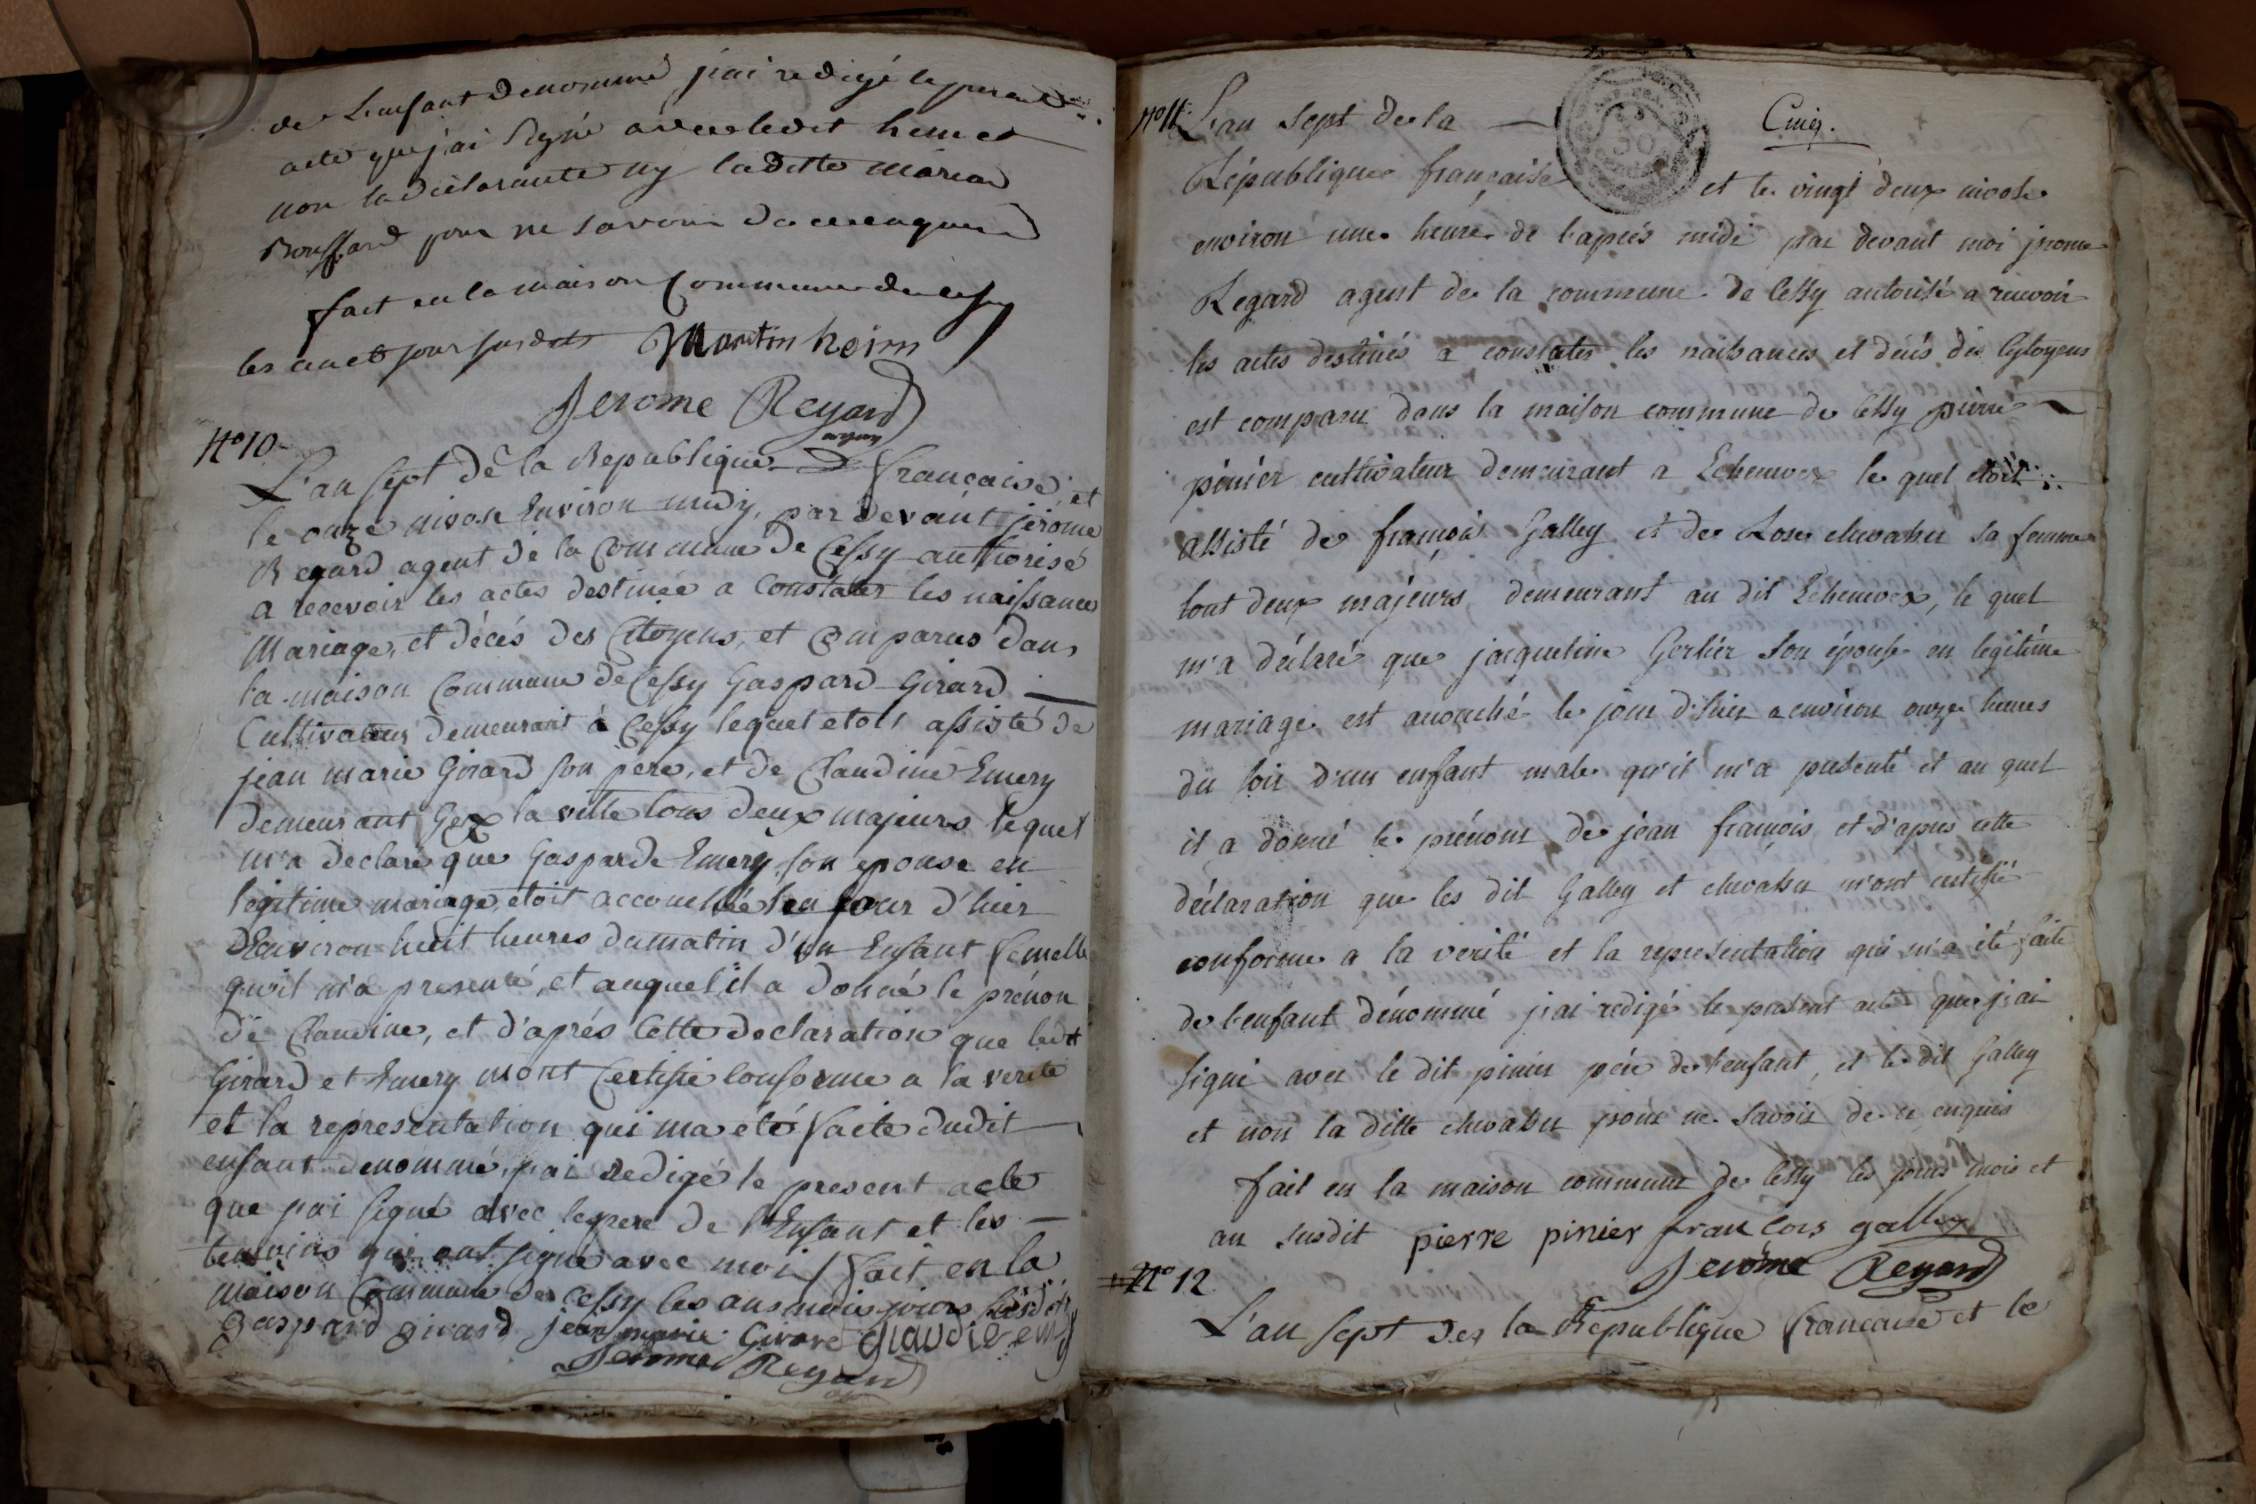 de L'enfant denommé j'ai redigé le present
acte que j'ai signé avec ledit heim et
non la déclarante ny laditte marian
Bouffard pour ne savoir de ce enquere
fait en la maison Commune de cessy
les an et jour susdits Martin heim
Jerome Regard
agent
N° 10
L'an sept de la Republique française, et
le onze nivose Environ midy, par devant jérome
Regard agent de la Commune de Cessy authorisé
a recevoir les actes destinée a Constater les naissances
Mariage, et décés des Citoyens, et Comparus dans
la maison Commune de Cessy Gaspard Girard
Cultivateur demeurant à Cessy lequel etoit assisté de
jean marie Girard son pere, et de Claudine Emery
demeurant Gex la ville tous deux majeurs lequel
m'a declaré que Gasparde Emery son epouse en
légitime mariage, etoit accouchée jour d'hier
d'Environ huit heures du matin d'un Enfant femelle
qu'il m'a presenté, et auquel il a donné le prénon
de Claudine, et d'aprés Cette declaration que ledit
Girard et Emery mont Certifié Conforme a la verité
et la representation qui ma été faite dudit
enfant denommé, j'ai Redigé le present acte
que j'ai signé avec le pere de l'Enfant et les
temoins qui ont signé avec moi / fait en la
maison Commune de Cessy les ans mois jours susdit
gaspard girard jean marie Girare
Jerome Regard
N° 11. L'an sept de la
République française et le vingt deux nivose
environ une heure de l'après midi par devant moi jrome
Regard agent de la commune de Cessy autorisé a recevoir
les actes destinés a constater les naissances et décés des Cytoyens
est comparu dans la maison commune de Cessy pierre
pinier cultivateur demeurant a Echenvex le quel etoit
assisté de françois Galley et de Rose chevassu sa femme
tout deux majeurs, demeurant au dit Echenvex, le quel
m'a déclaré que jacqueline Gerlier son épouse en legitime
mariage est accouché le jour d'hier a environ onze heures
du soir d'un enfant male qu'il m'a présenté et au quel
il a donné le prénom de jean françois et d'apres cette
déclaration que les dit Galley et chevassu m'ont certifié
conforme a la verité et la representation qui m'a été faite
de l'enfant dénommé j'ai redigé le présent acte que j'ai
signé avec le dit pinier pére de l'enfant, et le dit Galley
et non la ditte chevassu pour ne savoir de ce enquis
fait en la maison commune de Cessy les jours mois et
an susdit pierre pinier francois galley
Jerome Regard
N° 12
L'an sept de la République française et le